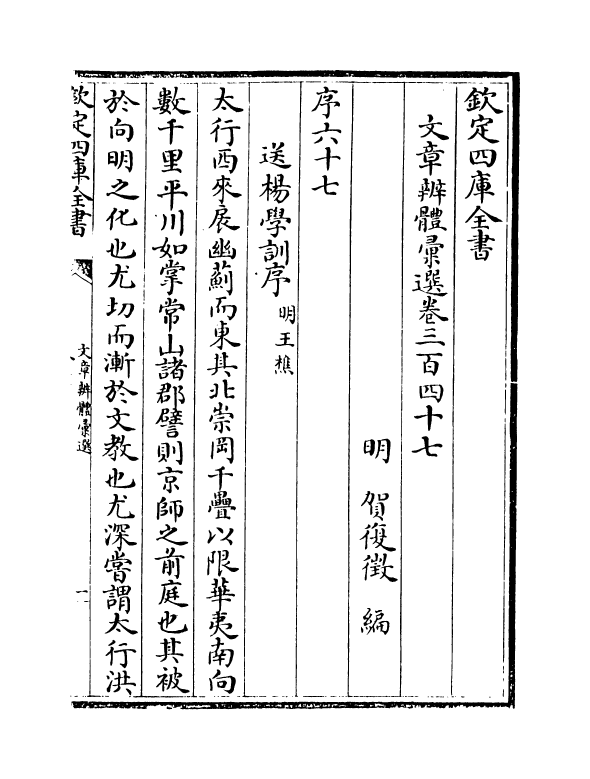 欽定四庫全書
文章辨體彙選卷三百四十七
明 賀復徵 編
序六十七
送楊學訓序 明王樵
太行西來展幽薊而東其北崇岡千疊以限華夷南向
數千里平川如掌常山諸郡譬則京師之前庭也其被
於向明之化也尤切而漸於文教也尤深嘗謂太行洪
欽定四庫全書
文章辨體彙選
一